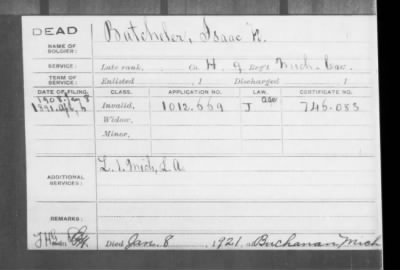 DEAD
NAME OF SOLDIER:
Butcheler, Isaac N.
SERVICE:
Late rank, Co. H, 9 Reg't Mich. Cav.
TERM OF SERVICE:
Enlisted 1 Discharged 1
DATE OF FILING. CLASS. APPLICATION NO. LAW. CERTIFICATE NO.
1908
1891 Invalid, 1012.669 J 746.083
Widow,
Minor,
ADDITIONAL SERVICES:
L. 1. Mich. L. A.
REMARKS:
Died Jan. 8 1921, at Buchanan Mich